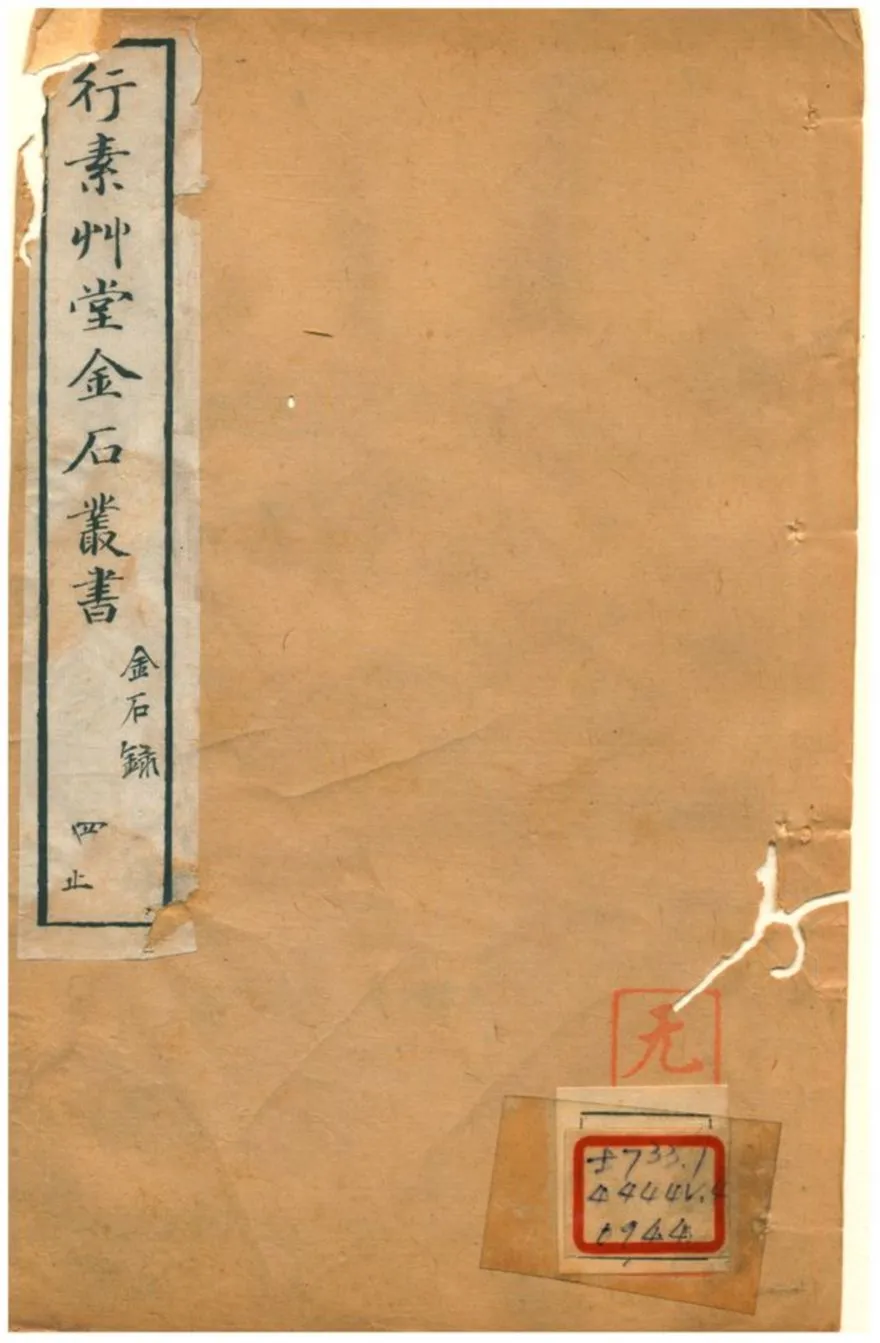 行素艸堂金石叢書
金石録
四止
无
733.1
4444V.4